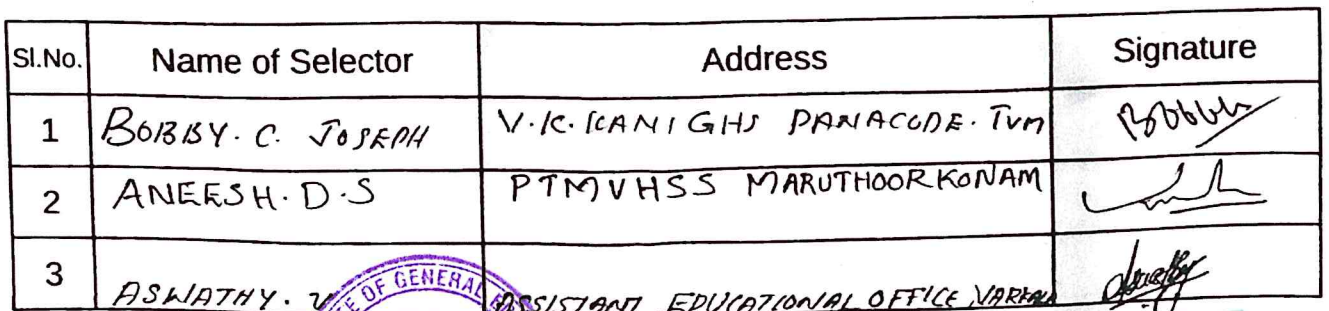 Sl.No. Name of Selector Address Signature
1 BOBBY. C. JOSEPH V.K. KANI GHS PANACODE. TVM
2 ANEESH. D.S PTMVHSS MARUTHOORKONAM
3 ASWATHY. ASSISTANT EDUCATIONAL OFFICE VARKALA
OF GENERAL